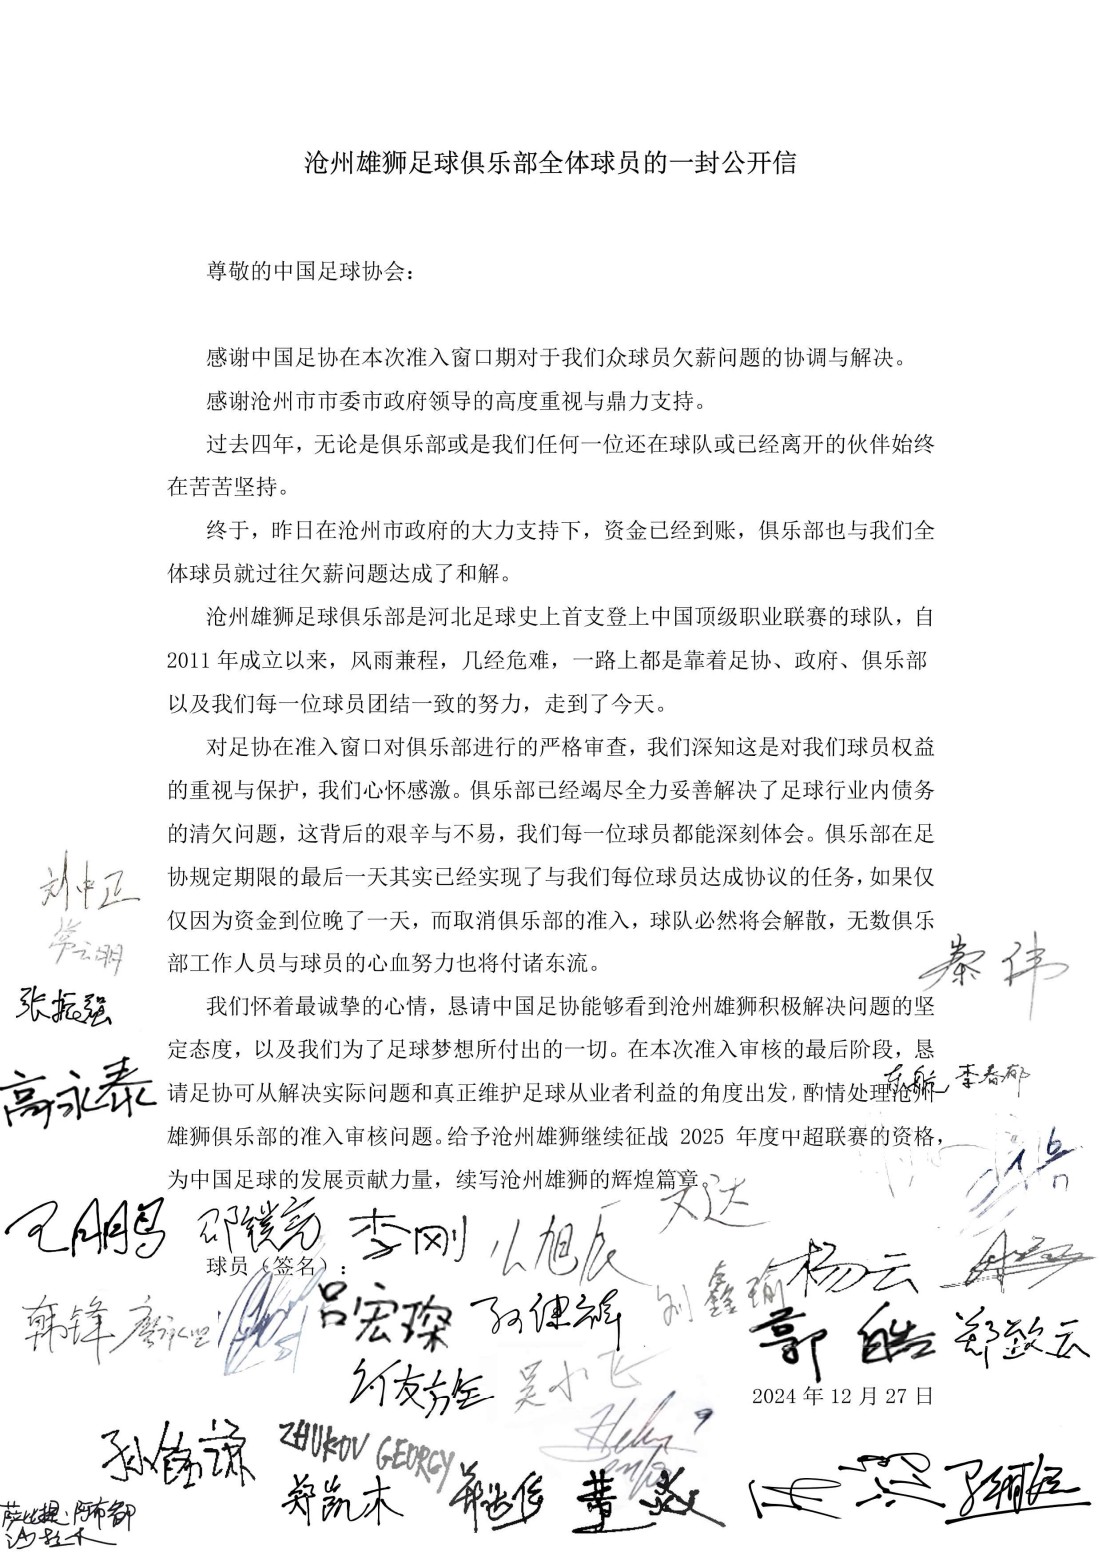 沧州雄狮足球俱乐部全体球员的一封公开信
尊敬的中国足球协会：
感谢中国足协在本次准入窗口期对于我们众球员欠薪问题的协调与解决。
感谢沧州市市委市政府领导的高度重视与鼎力支持。
过去四年，无论是俱乐部或是我们任何一位还在球队或已经离开的伙伴始终
在苦苦坚持。
终于，昨日在沧州市政府的大力支持下，资金已经到账，俱乐部也与我们全
体球员就过往欠薪问题达成了和解。
沧州雄狮足球俱乐部是河北足球史上首支登上中国顶级职业联赛的球队，自
2011年成立以来，风雨兼程，几经危难，一路上都是靠着足协、政府、俱乐部
以及我们每一位球员团结一致的努力，走到了今天。
对足协在准入窗口对俱乐部进行的严格审查，我们深知这是对我们球员权益
的重视与保护，我们心怀感激。俱乐部已经竭尽全力妥善解决了足球行业内债务
的清欠问题，这背后的艰辛与不易，我们每一位球员都能深刻体会。俱乐部在足
协规定期限的最后一天其实已经实现了与我们每位球员达成协议的任务，如果仅
仅因为资金到位晚了一天，而取消俱乐部的准入，球队必然将会解散，无数俱乐
部工作人员与球员的心血努力也将付诸东流。
我们怀着最诚挚的心情，恳请中国足协能够看到沧州雄狮积极解决问题的坚
定态度，以及我们为了足球梦想所付出的一切。在本次准入审核的最后阶段，恳
请足协可从解决实际问题和真正维护足球从业者利益的角度出发，酌情处理沧州
雄狮俱乐部的准入审核问题。给予沧州雄狮继续征战 2025 年度中超联赛的资格，
为中国足球的发展贡献力量，续写沧州雄狮的辉煌篇章
球员（签名）：
2024年12月27日
刘中正
张振强
高永泰
秦伟
李春郁
王朋鹏
邵镤亮
李刚
么旭辰
文达
杨云
韩锋
吕宏琛
孙健祥
刘鑫瑜
郭皓
郑致云
何友
吴小飞
孙铭谦
ZHUKOV GEORGY
郑凯木
萨比提·阿布都
沙拉木